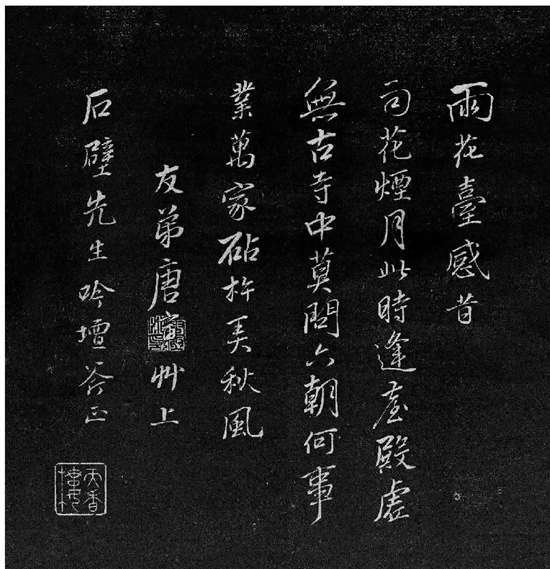 雨花臺感昔
司花煙月此時逢臺殿虛
無古寺中莫問六朝何事
業萬家砧杵美秋風
友弟唐寅艸上
石壁先生吟壇答正
天香樓